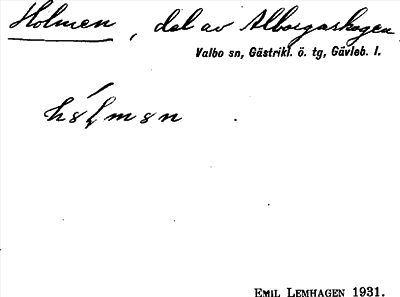 Holmen, del av Alborgaskogen
Valbo sn, Gästrikl. ö. tg, Gävleb. l.
hålmən.
EMIL LEMHAGEN 1931.